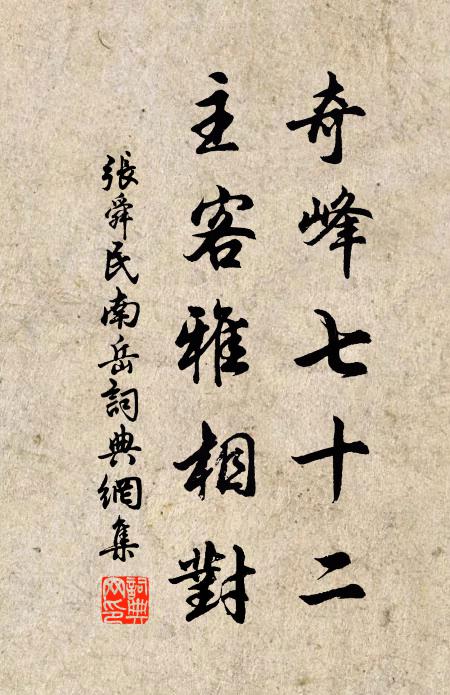 奇峰七十二
主客雅相對
張舜民南岳詞典網集
詞典
网印